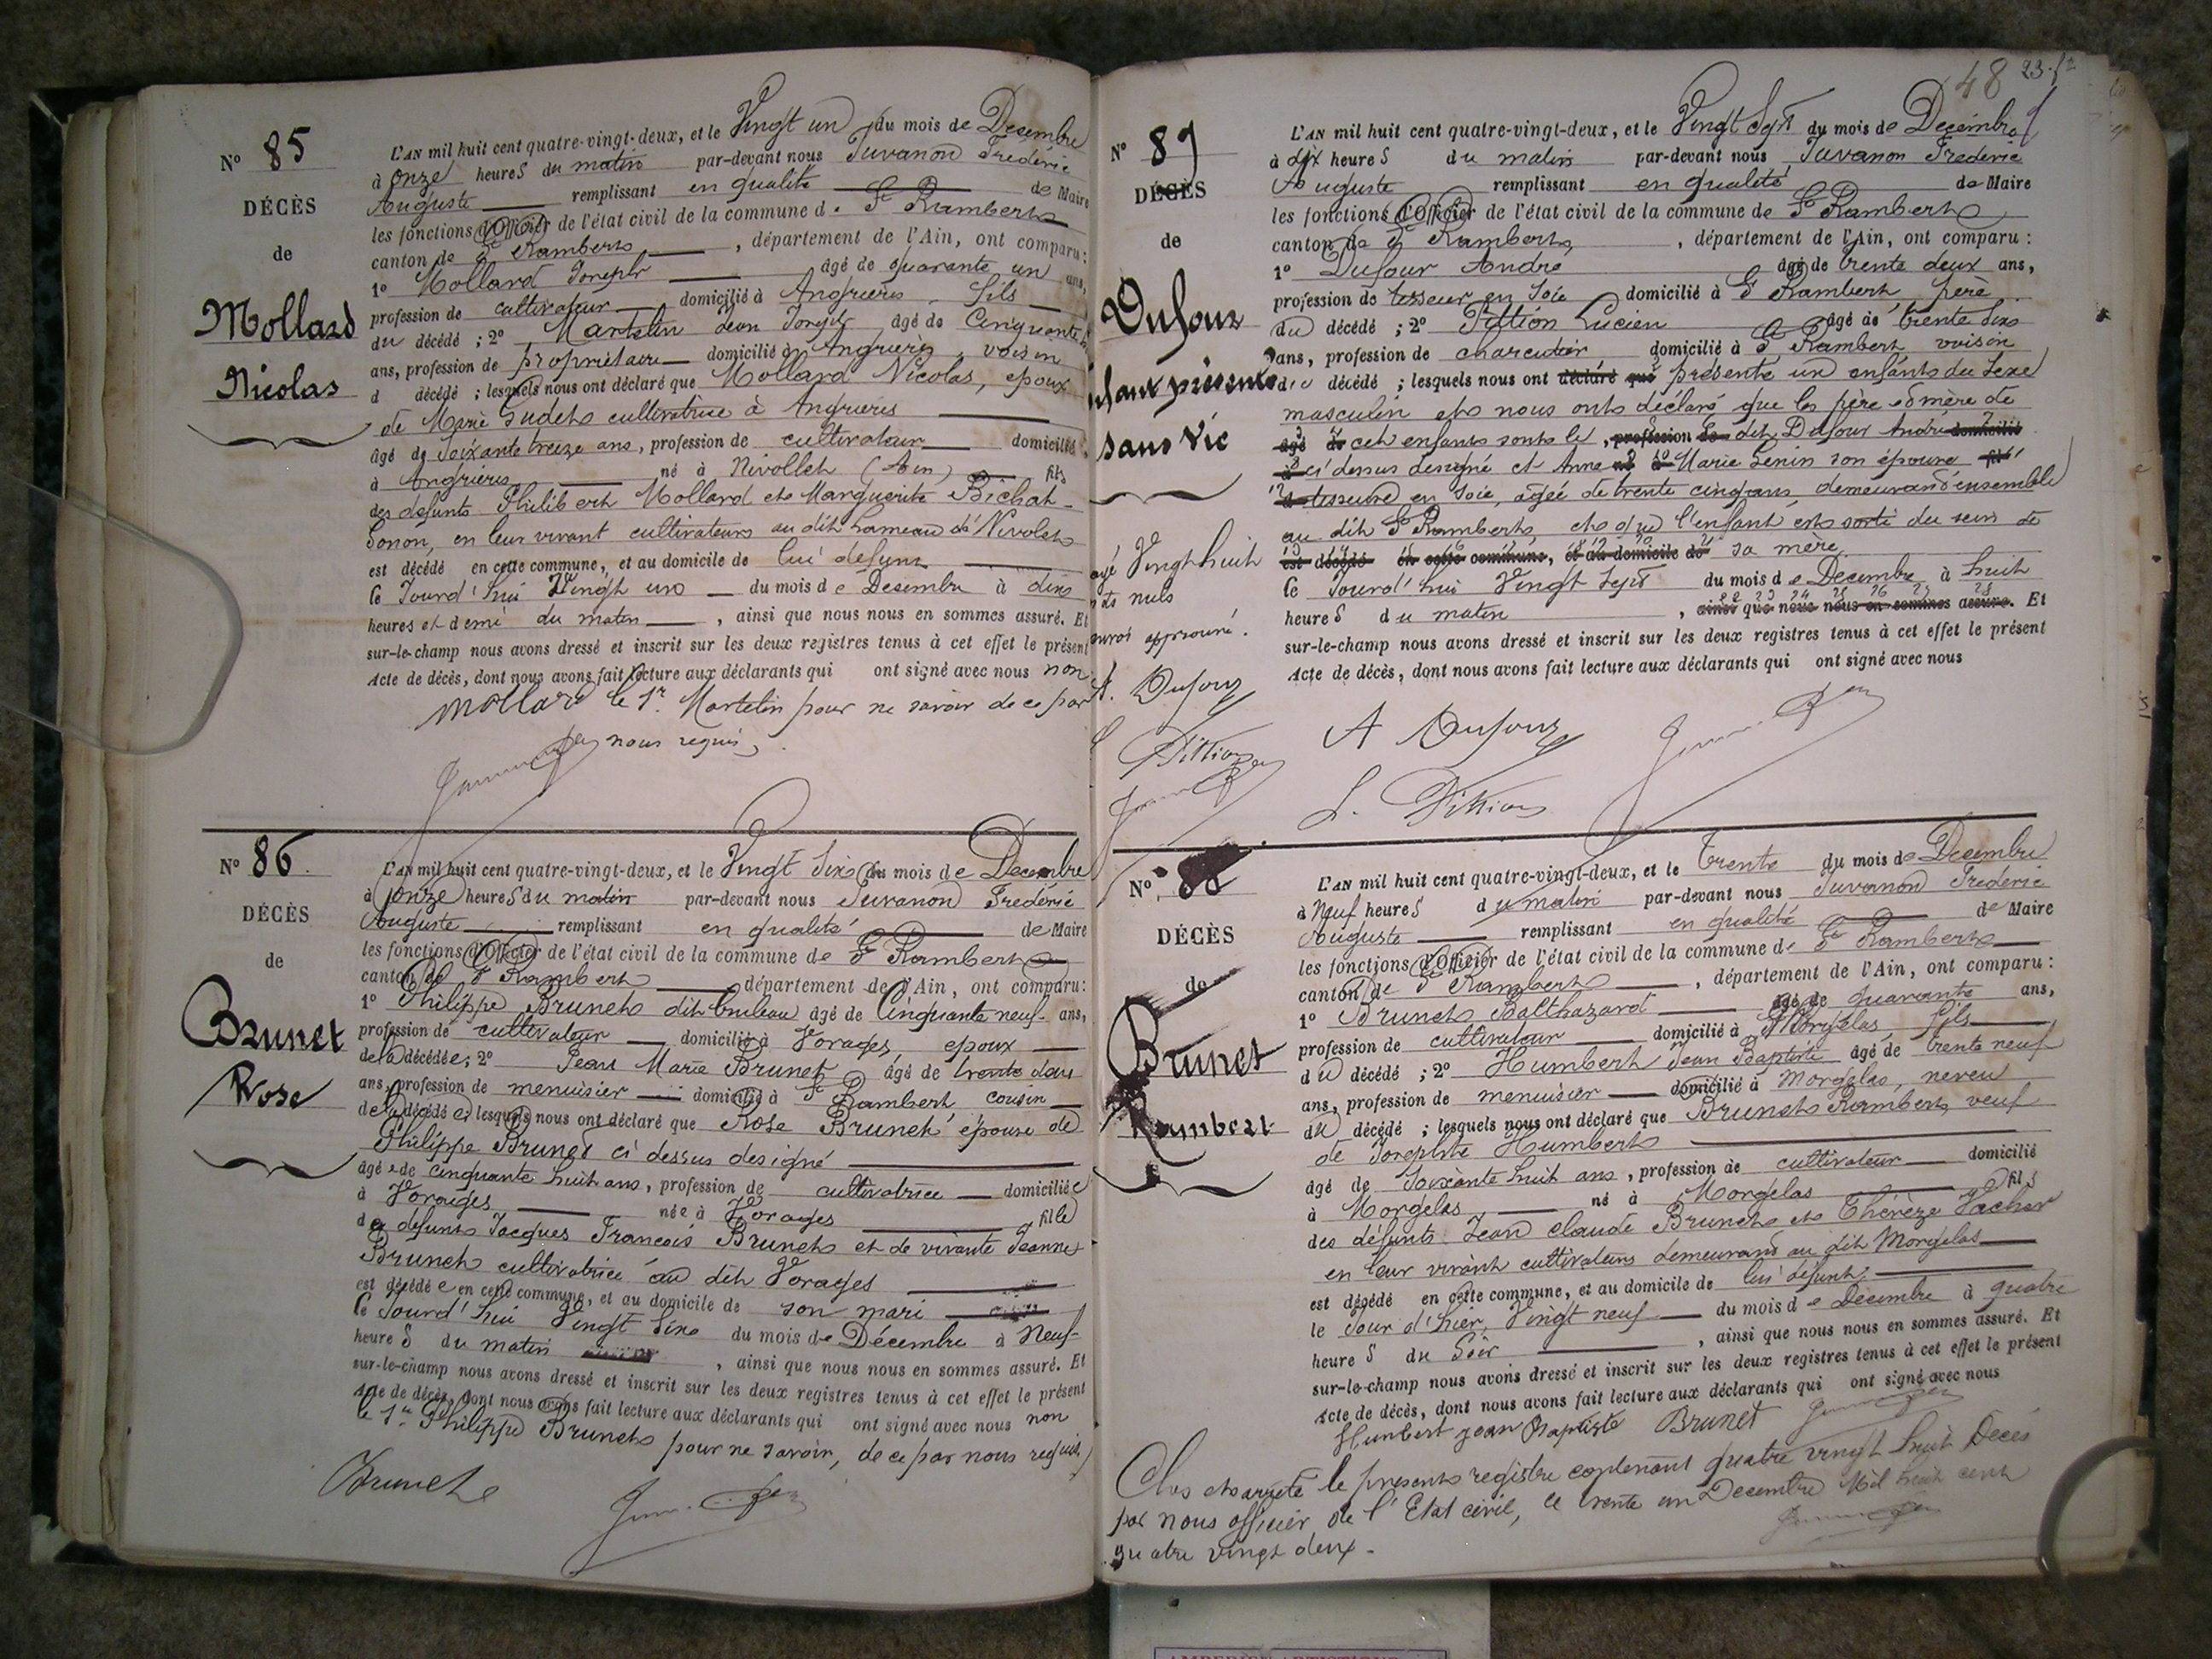 N° 85
DÉCÈS
de
Mollard
Nicolas
L'AN mil huit cent quatre-vingt-deux, et le Vingt un du mois de Decembre
à onze heures du matin par-devant nous Juvanon Frédéric
Auguste remplissant en qualité de Maire
les fonctions d'Officier de l'état civil de la commune de St Rambert
canton de St Rambert, département de l'Ain, ont comparu :
1° Mollard Joseph âgé de quarante un ans,
profession de cultivateur domicilié à Angrieres, fils
du décédé ; 2° Martelin Jean Joseph âgé de Cinquante
ans, profession de propriétaire domicilié à Angrières, voisin
d décédé ; lesquels nous ont déclaré que Mollard Nicolas, epoux
de Marie Gudet cultivatrice à Angrieres
âgé de Soixante treize ans, profession de cultivateur domicilié
à Angrieres né à Nivollet (Ain) fils
des defunts Philibert Mollard et Marguerite Bichat-
Sonon, en leur vivant cultivateurs au dit hameau de Nivolet
est décédé en cette commune, et au domicile de lui defunt
le Jourd'hui Vingt un du mois de Decembre à dix
heures et demi du matin, ainsi que nous nous en sommes assuré. Et
sur-le-champ nous avons dressé et inscrit sur les deux registres tenus à cet effet le présent
Acte de décès, dont nous avons fait lecture aux déclarants qui ont signé avec nous non
mollard le 1r. Martelin pour ne savoir de ce par
nous requis
N° 86
DÉCÈS
de
Brunet
Rose
L'AN mil huit cent quatre-vingt-deux, et le Vingt Six du mois de Decembre
à onze heures du matin par-devant nous Juvanon Frédéric
Auguste remplissant en qualité de Maire
les fonctions d'Officier de l'état civil de la commune de St Rambert
canton de St Rambert département de l'Ain, ont comparu :
1° Philippe Brunet dit âgé de Cinquante neuf ans,
profession de cultivateur domicilié à Vorages, epoux
de la décédée ; 2° Jean Marie Brunet âgé de trente deux
ans, profession de menuisier domicilié à St Rambert cousin
de la décédée ; lesquels nous ont déclaré que Rose Brunet épouse de
Philippe Brunet ci dessus designé
âgée de cinquante huit ans, profession de cultivatrice domiciliée
à Vorages née à Vorages fille
de defunt Jacques Francois Brunet et de vivante Jeanne
Brunet cultivatrice au dit Vorages
est décédée en cette commune, et au domicile de son mari
le Jourd'hui Vingt Six du mois de Décembre à Neuf
heures du matin, ainsi que nous nous en sommes assuré. Et
sur-le-champ nous avons dressé et inscrit sur les deux registres tenus à cet effet le présent
Acte de décès, dont nous avons fait lecture aux déclarants qui ont signé avec nous non
le 1er Philippe Brunet pour ne savoir, de ce par nous requis
Brunet
48 23
N° 87
DÉCÈS
de
Dufour
enfant présenté
sans vie
rayé Vingt huit
mots nuls
approuvé.
A. Dufour
L Pittion
L'AN mil huit cent quatre-vingt-deux, et le Vingt Sept du mois de Decembre
à dix heures du matin par-devant nous Juvanon Frederic
Auguste remplissant en qualité de Maire
les fonctions d'Officier de l'état civil de la commune de St Rambert
canton de St Rambert, département de l'Ain, ont comparu :
1° Dufour André âgé de trente deux ans,
profession de tisseur en Soie domicilié à St Rambert père
du décédé ; 2° Pittion Lucien âgé de trente Six
ans, profession de charcutier domicilié à St Rambert voisin
du décédé ; lesquels nous ont déclaré que présenté un enfant du Sexe
masculin et nous ont déclaré que les père et mère de
âgé de cet enfant sont le, profession de dit Dufour André domicilié
à ci dessus designé et Anne né à Marie Genin son épouse fil
d tisseuse en Soie, agée de trente cinq ans, demeurant ensemble
au dit St Rambert, et que l'enfant est sorti du sein de
est décédé en cette commune, et au domicile de sa mère
le Jourd'hui Vingt Sept du mois de Decembre à huit
heures du matin, ainsi que nous nous en sommes assuré. Et
sur-le-champ nous avons dressé et inscrit sur les deux registres tenus à cet effet le présent
Acte de décès, dont nous avons fait lecture aux déclarants qui ont signé avec nous
A Dufour
L. Pittion
N° 88
DÉCÈS
de
Brunet
Rambert
L'AN mil huit cent quatre-vingt-deux, et le trente du mois de Decembre
à Neuf heures du matin par-devant nous Juvanon Frederic
Auguste remplissant en qualité de Maire
les fonctions d'Officier de l'état civil de la commune de St Rambert
canton de St Rambert, département de l'Ain, ont comparu :
1° Brunet Balthazard âgé de quarante ans,
profession de cultivateur domicilié à Morgelas, fils
du décédé ; 2° Humbert Jean Baptiste âgé de trente neuf
ans, profession de menuisier domicilié à Morgelas, neveu
du décédé ; lesquels nous ont déclaré que Brunet Rambert, veuf
de Josephte Humbert
âgé de Soixante huit ans, profession de cultivateur domicilié
à Morgelas né à Morgelas fils
des défunts Jean Claude Brunet et Thérèze Vacher
en leur vivant cultivateurs demeurant au dit Morgelas
est décédé en cette commune, et au domicile de lui défunt
le Jour d'hier, Vingt neuf du mois de Decembre à quatre
heures du Soir, ainsi que nous nous en sommes assuré. Et
sur-le-champ nous avons dressé et inscrit sur les deux registres tenus à cet effet le présent
Acte de décès, dont nous avons fait lecture aux déclarants qui ont signé avec nous
Humbert jean Baptiste Brunet
Clos et arreté le present registre contenant quatre vingt huit Décès
par nous officier de l'Etat civil, le trente un Decembre Mil huit cent
quatre vingt deux.